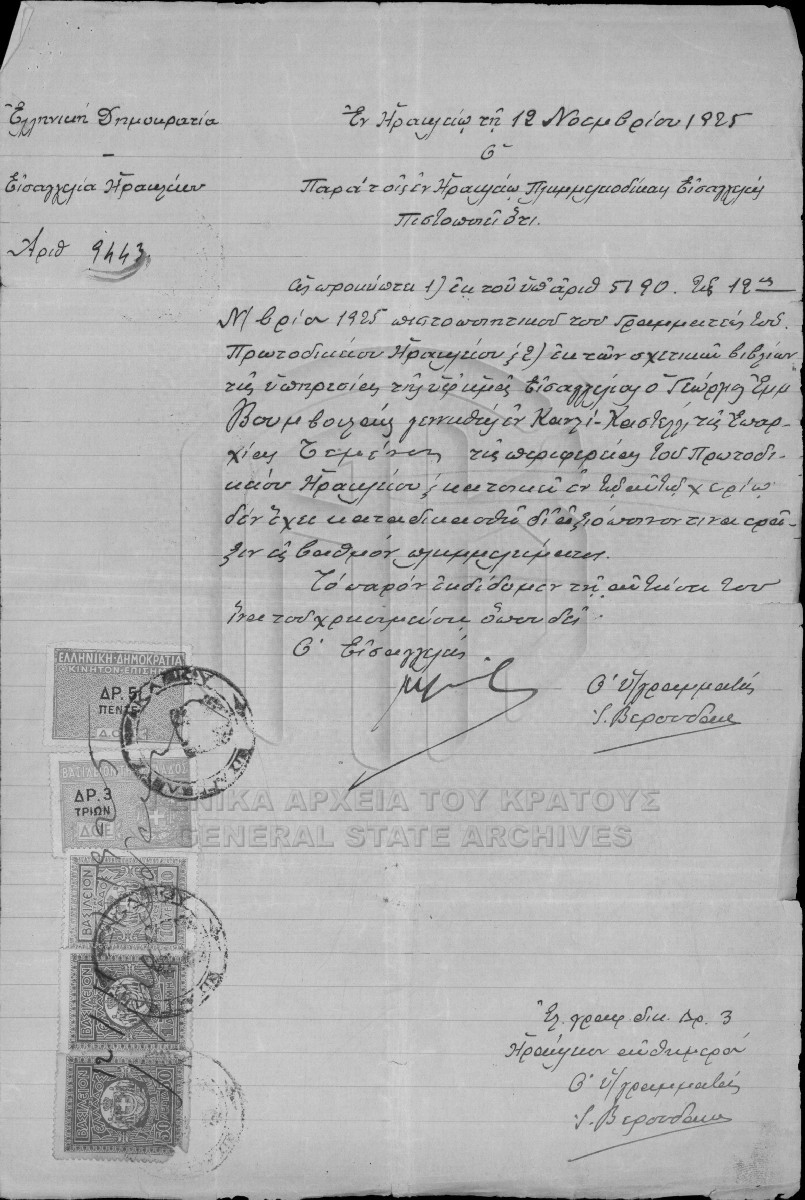 Ἑλληνική Δημοκρατία
Εἰσαγγελία Ἡρακλείου
Ἀριθ 9443
Ἐν Ἡρακλείῳ τῇ 12 Νοεμβρίου 1925
Ὁ
Παρά τοῖς ἐν Ἡρακλείῳ Πλημμελειοδίκαις Εἰσαγγελεύς
Πιστοποιεῖ ὅτι
Ὡς προκύπτει 1) ἐκ τοῦ ὑπ' ἀριθ 5190. τῆς 12ης
Ν/βρίου 1925 πιστοποιητικοῦ του Γραμματέως τοῦ
Πρωτοδικείου Ἡρακλείου, 2) ἐκ τῶν σχετικῶν βιβλίων
τῆς ὑπηρεσίας τῆς ὑφ' ἡμᾶς Εἰσαγγελίας ὁ Γεώργιος Ἐμμ
γεννηθείς ἐν Κανλί-Καστέλλι τῆς Ἐπαρ-
χίας Τεμένους τῆς περιφερείας τοῦ Πρωτοδι-
κείου Ἡρακλείου, κατοικεῖ ἐν χωρίῳ
δέν ἔχει καταδικασθῆ δι' ἀξιόποινον τινα πρᾶ-
ξιν εἰς βαθμόν πλημμελήματος.
Τό παρόν ἐκδίδομεν τῇ αἰτήσει του
ἵνα τοῦ χρησιμεύσῃ ὅπου δεῖ.
Ὁ Εἰσαγγελεύς
Ὁ ὑ/γραμματεύς
Ι. Βερουδάκης
ΕΛΛΗΝΙΚΗ ΔΗΜΟΚΡΑΤΙΑ
ΚΙΝΗΤΟΝ ΕΠΙΣΗΜΑ
ΔΡ. 5
ΠΕΝΤΕ
ΔΡ. 3
ΤΡΙΩΝ
ΔΟΕ
ΒΑΣΙΛΕΙΟΝ
10
ΒΑΣΙΛΕΙΟΝ
ΒΑΣΙΛΕΙΟΝ
50
ΑΡΧΕΙΑ ΤΟΥ ΚΡΑΤΟΥΣ
GENERAL STATE ARCHIVES
Ἐλ. γραφ δικ. Δρ. 3
Ἡράκλειον αὐθημερόν
Ὁ ὑ/γραμματεύς
Ι. Βερουδάκης